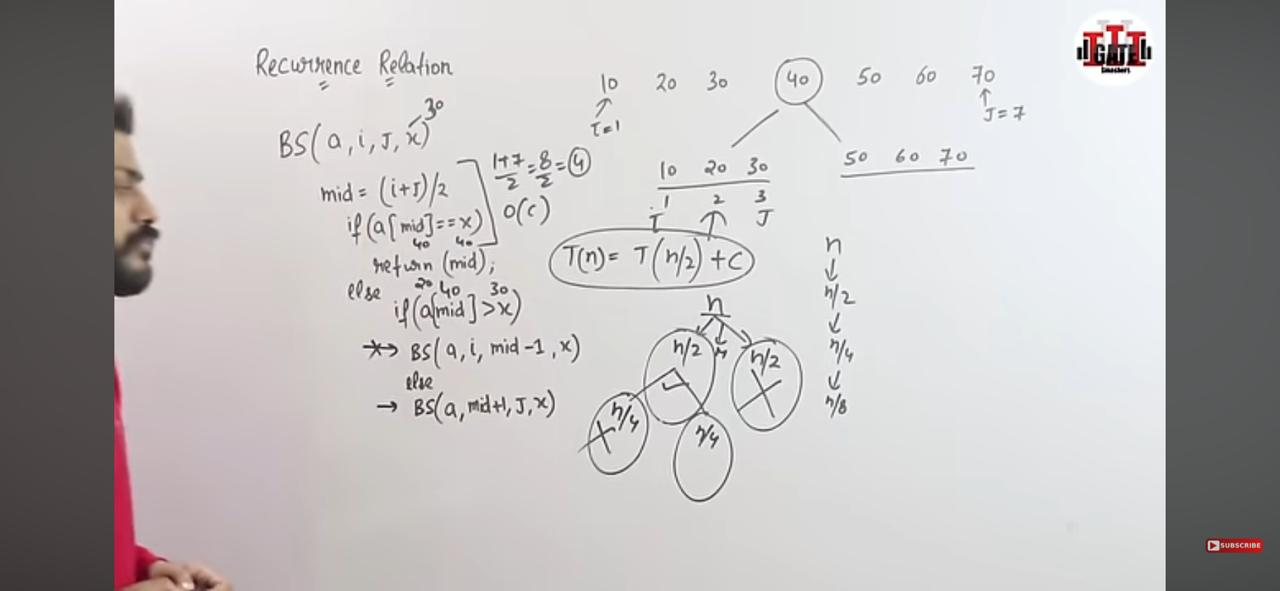 Recurrence Relation
BS(a, i, J, x)
30
mid = (i+J)/2
if(a[mid]==x)
40 40
return (mid);
else
20 40 30
if(a[mid]>x)
BS(a, i, mid-1, x)
else
BS(a, mid+1, J, x)
1+7/2 = 8/2 = 4
O(c)
10 20 30 40 50 60 70
I=1
J=7
10 20 30
1 2 3
i J
50 60 70
T(n) = T(n/2) + C
n
n/2 n/2
n/4 n/4
n
n/2
n/4
n/8
GATE
Smashers
SUBSCRIBE